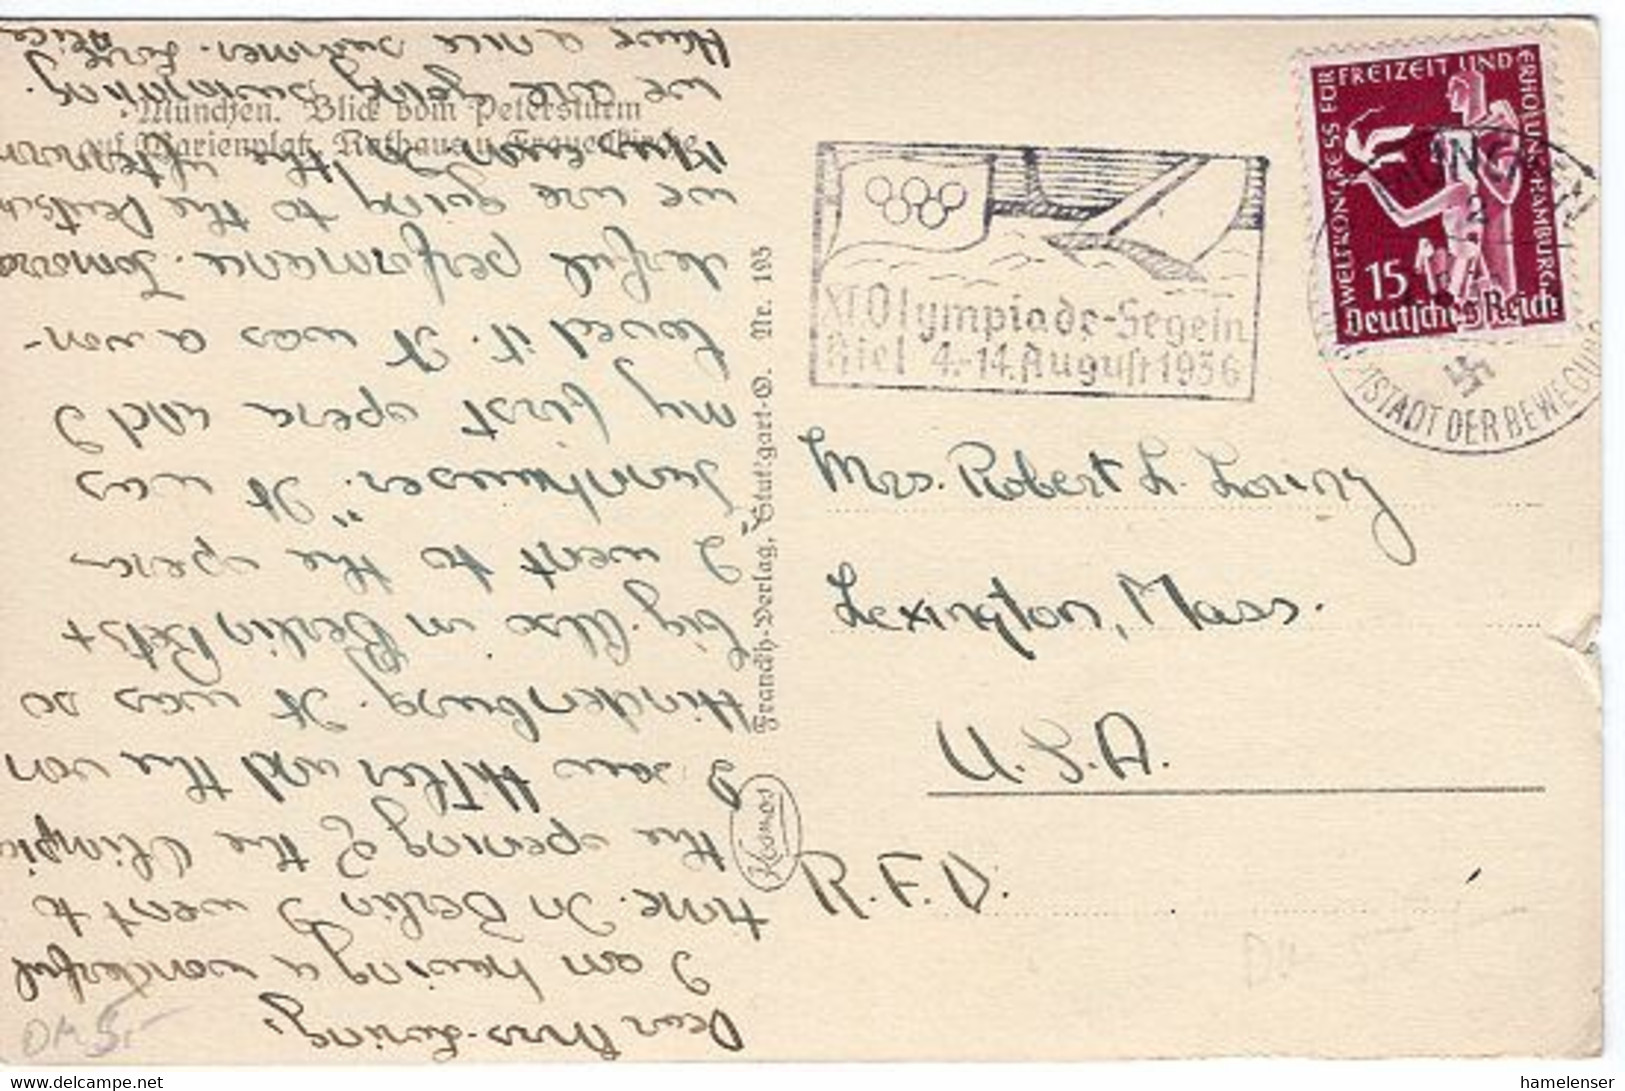 Dear Mrs. Loring,
I am having a wonderful
time. In Berlin I went to
the opening of the Olimpic
I saw Hitler and the von
Hindenburg. It was so
big. Also in Berlin
I went to the opera
"Tannhauser". It was
my first opera and I
loved it. It was a won-
derful performance. Tomorrow
we are going to the Deutsch
Museum in the afternoon
we are going swimming.
Have a nice summer. Love,
Alice
München. Blick vom Petersturm
auf Marienplatz, Rathaus u. Frauenkirche
Franckh-Verlag, Stuttgart-O. Nr. 195
Kosmos
XI Olympiade-Segeln
Kiel 4.-14. August 1936
WELTKONGRESS FÜR FREIZEIT UND ERHOLUNG HAMBURG
15
Deutsches Reich
TSTADT DER BEWEGUNG
Mrs. Robert L. Loring
Lexington, Mass.
U.S.A.
R.F.D.
DM 5,-
hamelenser